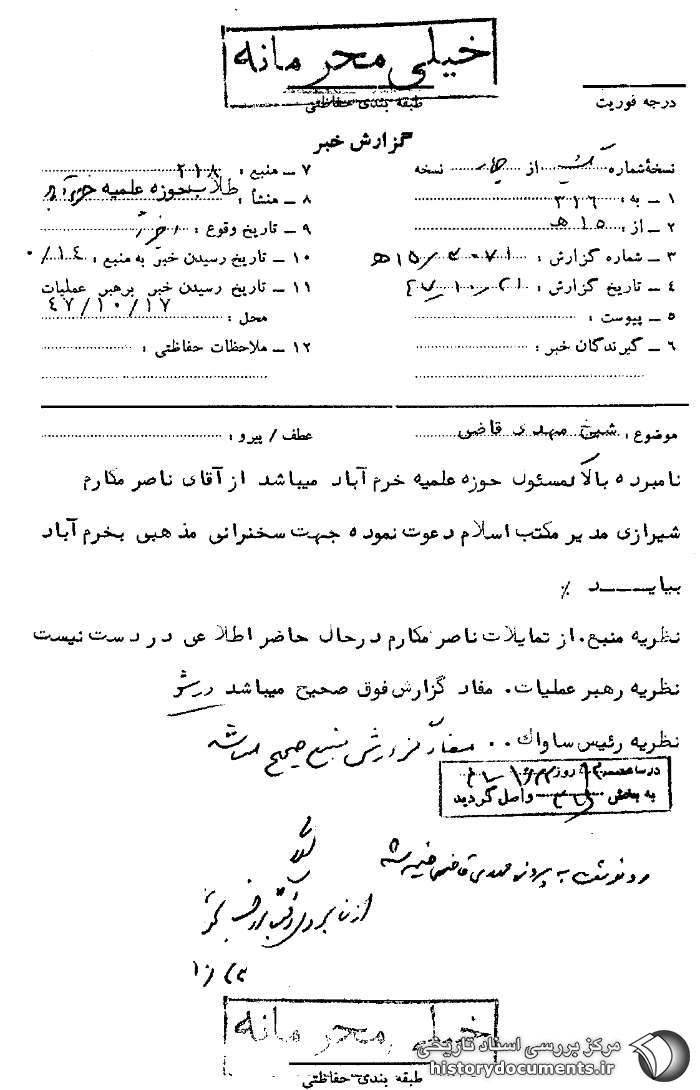 خیلی محرمانه
طبقه بندی حفاظتی
درجه فوریت
گزارش خبر
نسخهٔ شماره یک از چهار نسخه
۱ ـ به : ۳۱۶
۲ ـ از : ۱۵ ه
۳ ـ شماره گزارش :
۴ ـ تاریخ گزارش :
۵ ـ پیوست :
۶ ـ گیرندگان خبر :
۷ ـ منبع : ۲۱۸
۸ ـ منشأ : طلاب حوزه علمیه خرم آباد
۹ ـ تاریخ وقوع :
۱۰ ـ تاریخ رسیدن خبر به منبع :
۱۱ ـ تاریخ رسیدن خبر برهبر عملیات
محل : ۴۷/۱۰/۱۷
۱۲ ـ ملاحظات حفاظتی :
موضوع : شیخ مهدی قاضی
عطف / پیرو :
نامبرده بالا مسئول حوزه علمیه خرم آباد میباشد از آقای ناصر مکارم
شیرازی مدیر مکتب اسلام دعوت نموده جهت سخنرانی مذهبی بخرم آباد
بیایـــــد ٪
نظریه منبع. از تمایلات ناصر مکارم درحال حاضر اطلاعی در دست نیست
نظریه رهبر عملیات. مفاد گزارش فوق صحیح میباشد
نظریه رئیس ساواک .. مفاد گزارش منبع صحیح میباشد
در ساعت روز
به بخش ۳۱۶ واصل گردید
رونوشت به پرونده مهدی قاضی ضمیمه شد
خیلی محرمانه
طبقه بندی حفاظتی
مرکز بررسی اسناد تاریخی
historydocuments.ir